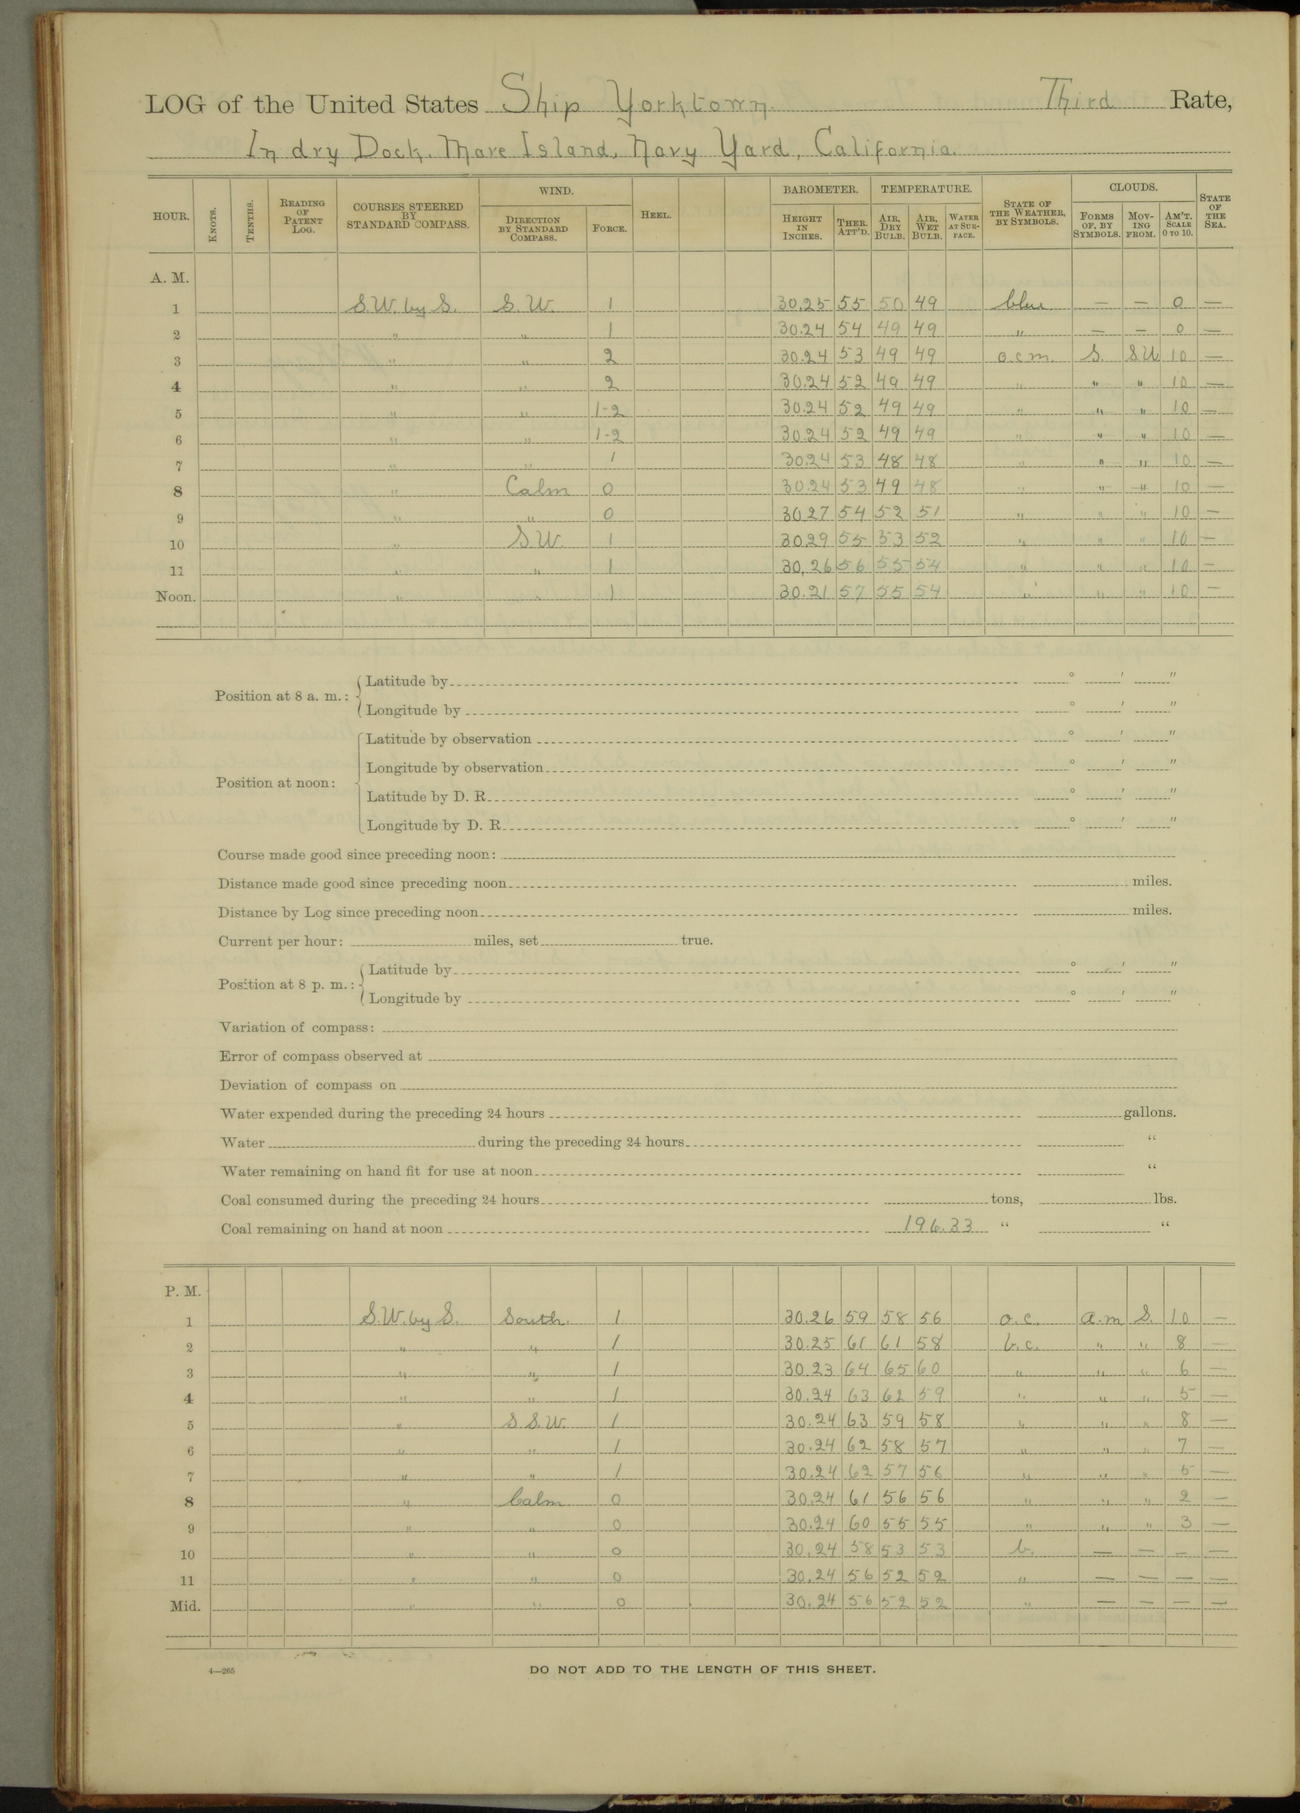 LOG of the United States Ship Yorktown. Third Rate,
In dry Dock, Mare Island, Navy Yard, California.
HOUR. KNOTS. TENTHS. READING OF PATENT LOG. COURSES STEERED BY STANDARD COMPASS. WIND. DIRECTION BY STANDARD COMPASS. FORCE. HEEL. BAROMETER. HEIGHT IN INCHES. THER. ATT'D. TEMPERATURE. AIR, DRY BULB. AIR, WET BULB. WATER AT SURFACE. STATE OF THE WEATHER, BY SYMBOLS. CLOUDS. FORMS OF, BY SYMBOLS. MOVING FROM. AM'T. SCALE 0 TO 10. STATE OF THE SEA.
A. M.
1 S.W. by S. S.W. 1 30.25 55 50 49 blue — — 0 —
2 " " 1 30.24 54 49 49 " — — 0 —
3 " " 2 30.24 53 49 49 o.c.m. S. SW 10 —
4 " " 2 30.24 52 49 49 " " " 10 —
5 " " 1-2 30.24 52 49 49 " " " 10 —
6 " " 1-2 30.24 52 49 49 " " " 10 —
7 " " 1 30.24 53 48 48 " " " 10 —
8 " Calm 0 30.24 53 49 48 " " " 10 —
9 " " 0 30.27 54 52 51 " " " 10 —
10 " S.W. 1 30.29 55 53 52 " " " 10 —
11 " " 1 30.26 56 55 54 " " " 10 —
Noon. " " 1 30.21 57 55 54 " " " 10 —
Position at 8 a. m.: Latitude by ° ' "
Longitude by ° ' "
Position at noon: Latitude by observation ° ' "
Longitude by observation ° ' "
Latitude by D. R. ° ' "
Longitude by D. R. ° ' "
Course made good since preceding noon:
Distance made good since preceding noon miles.
Distance by Log since preceding noon miles.
Current per hour: miles, set true.
Position at 8 p. m.: Latitude by ° ' "
Longitude by ° ' "
Variation of compass:
Error of compass observed at
Deviation of compass on
Water expended during the preceding 24 hours gallons.
Water during the preceding 24 hours "
Water remaining on hand fit for use at noon "
Coal consumed during the preceding 24 hours tons, lbs.
Coal remaining on hand at noon 196.33 " "
P. M.
1 S.W. by S. South. 1 30.26 59 58 56 o.c. a.m S. 10 —
2 " " 1 30.25 61 61 58 b.c. " " 8 —
3 " " 1 30.23 64 65 60 " " " 6 —
4 " " 1 30.24 63 62 59 " " " 5 —
5 " S.S.W. 1 30.24 63 59 58 " " " 8 —
6 " " 1 30.24 62 58 57 " " " 7 —
7 " " 1 30.24 62 57 56 " " " 5 —
8 " Calm 0 30.24 61 56 56 " " " 2 —
9 " " 0 30.24 60 55 55 " " " 3 —
10 " " 0 30.24 58 53 53 b. — — — —
11 " " 0 30.24 56 52 52 " — — — —
Mid. " " 0 30.24 56 52 52 " — — — —
4—265 DO NOT ADD TO THE LENGTH OF THIS SHEET.